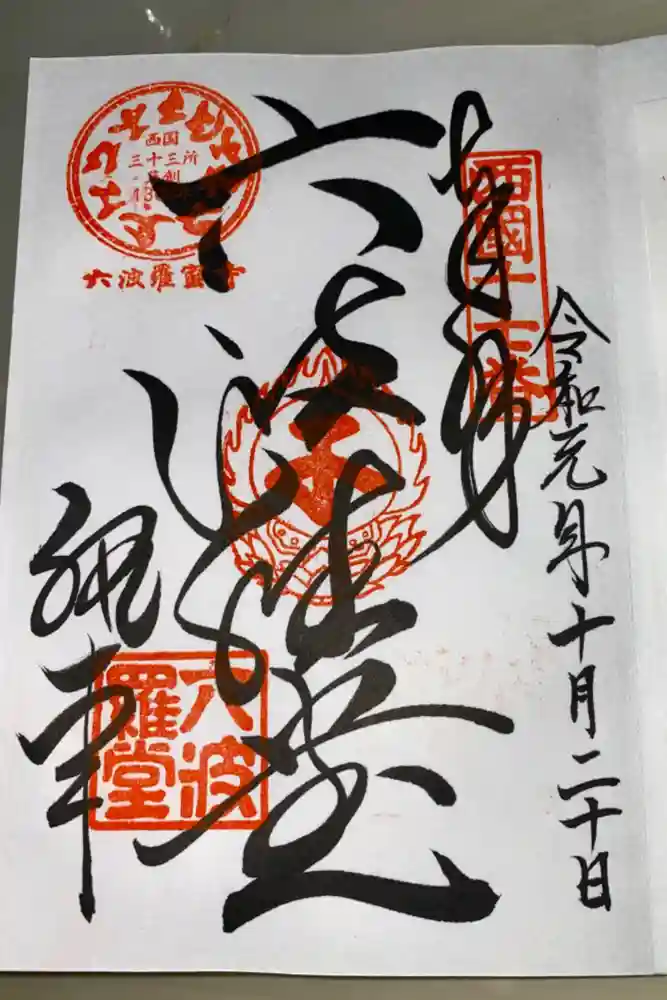 奉拝
西國十七番
令和元年十月二十日
六波羅堂
六波羅堂
西国
三十三所
草創
1300
六波羅蜜寺